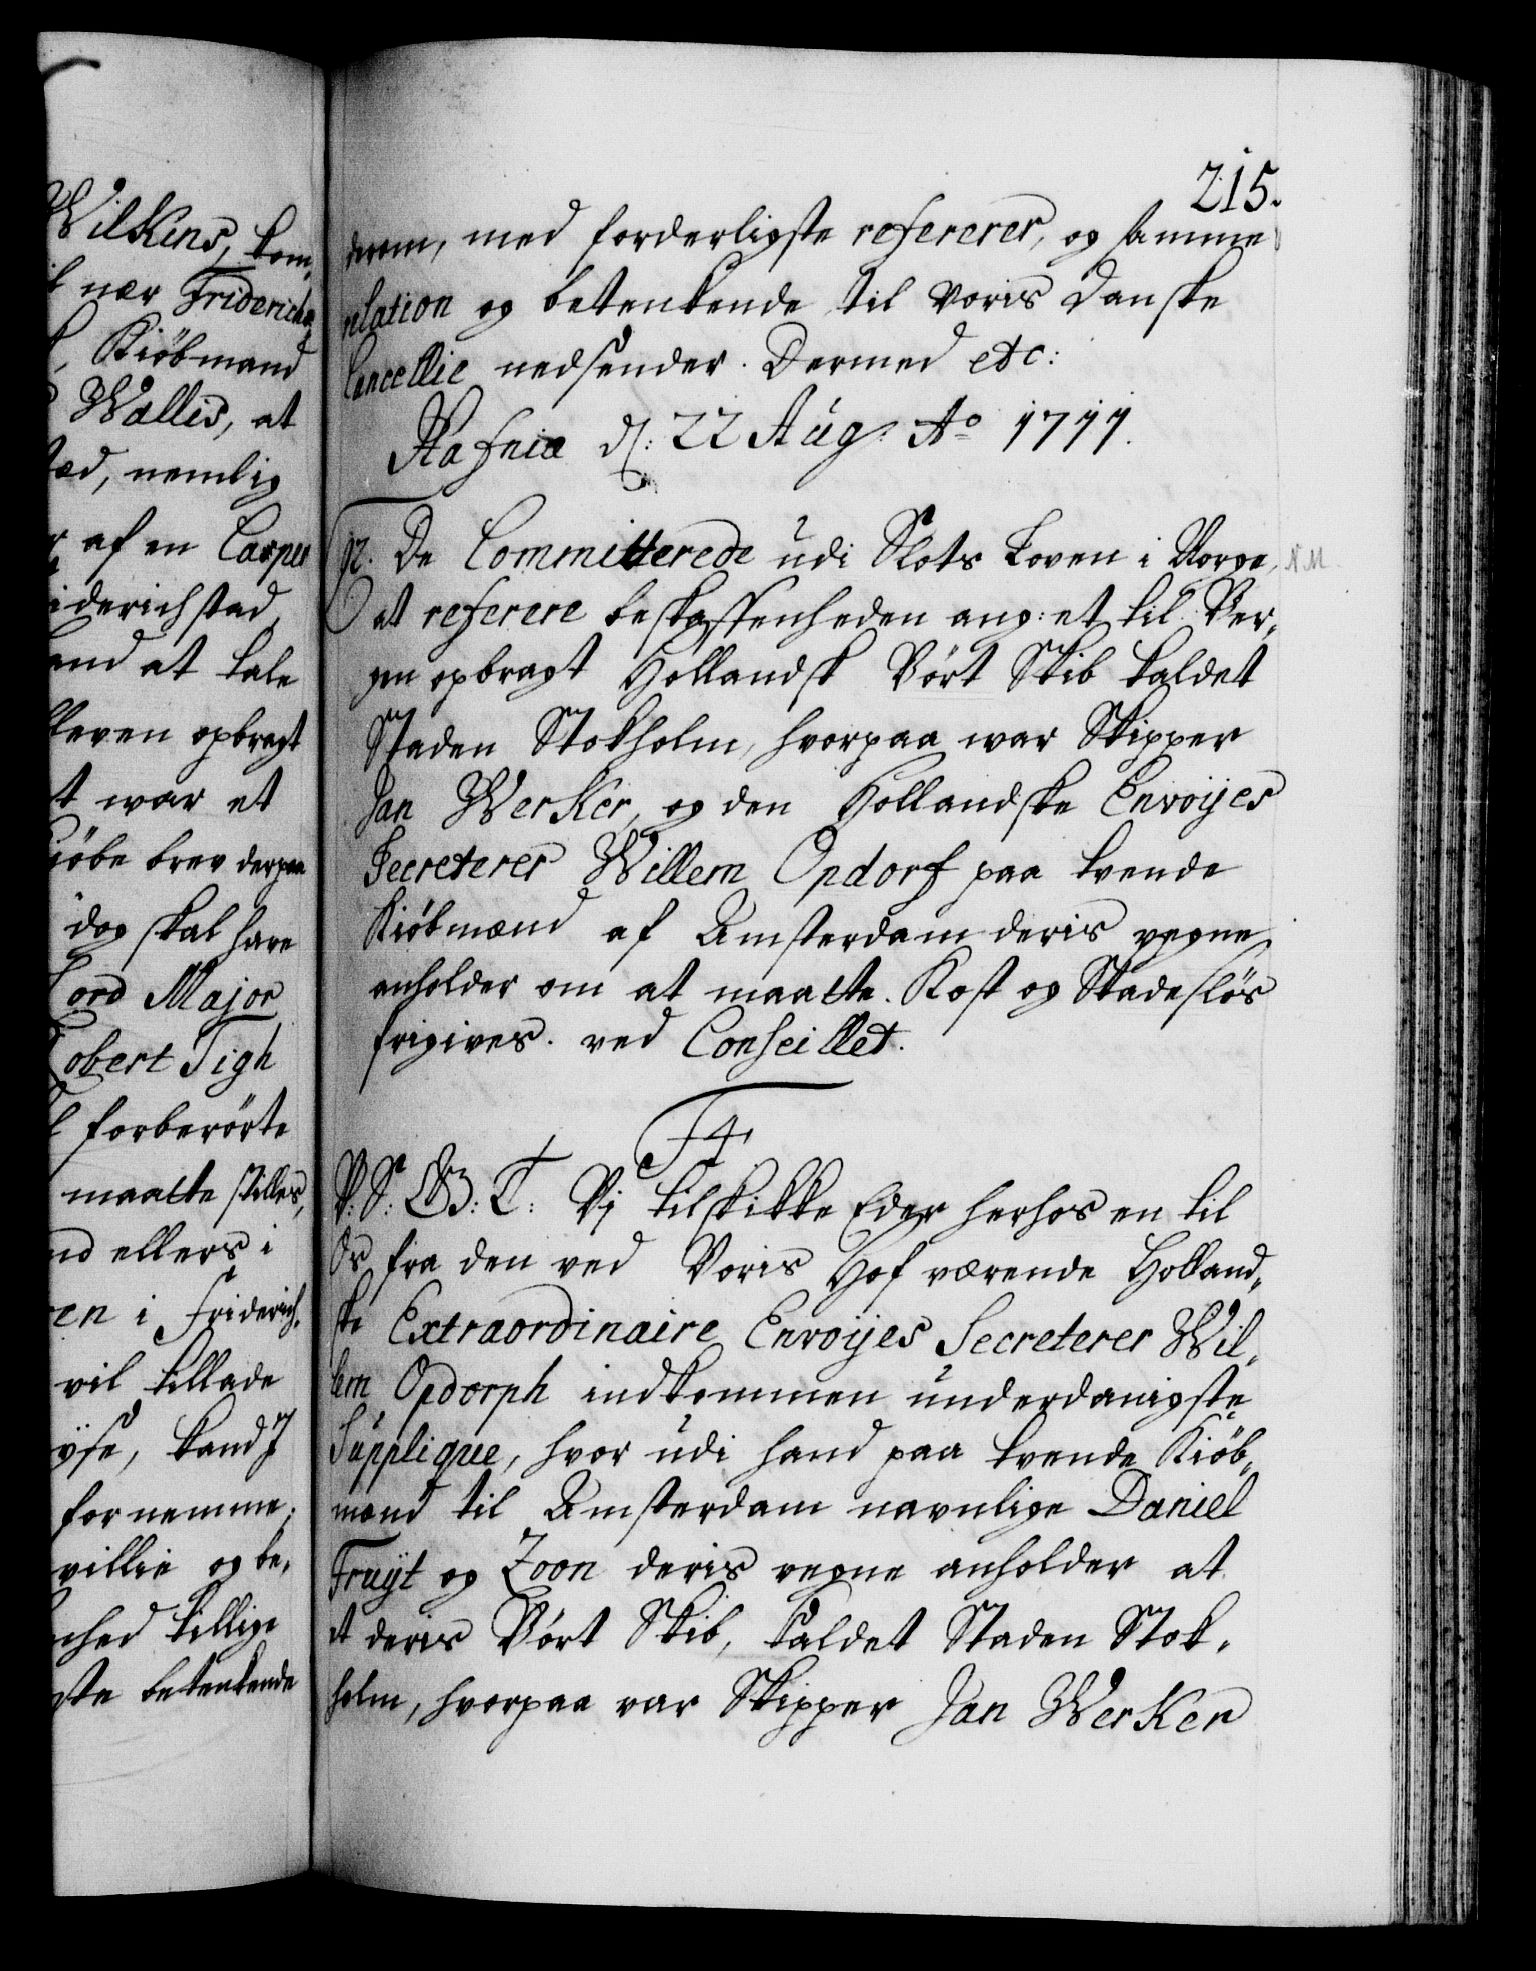 Wilkens, kom¬
nær Friderichs
Kiöbmand
Wallis, at
nemlig
af en Casper
iderichstad
and at tale
kleven opbragt
t war et
iöbe brev derpaa
dog skal have
Lord Major
Robert Tigh
forberörte
maatte skilles,
nd ellers i
en i Friderich¬
vil tillade
ÿse, kand J
fornemme,
villie og be¬
hed tillige
ste betenkende
215.
derom, med forderligste refererer, og samme
relation og betenkende til Voris Danske
Cancellie nedsender. Dermed etc:
Hafniæ d: 22 Aug: Ao 1711.
92. De Committerede udi Slots Loven i Norge,
N.M.
at referere beskaffenheden ang: et til Ber¬
gen opbragt Hollandsk Bört Skib kaldet
Staden Stokholm, hvorpaa war Skipper
Jan Werker, og den Hollandske Envoÿes
Secreterer Willem Opdorf paa tvende
Kiöbmænd af Amsterdam deris vegne
anholder om at maatte Kost og Skadeslös
frigives. ved Conseillet.
F4.
V: S: G: T: Vj tilskikke Eder herhos en til
Os fra den ved Voris Hof værende Holland¬
ske Extraordinaire Envoÿes Secreterer Wil¬
lem Opdorph indkommen underdanigste
Supplique, hvor udi hand paa tvende Kiöb¬
mænd til Amsterdam navnlige Daniel
Fruÿt og Zoon deris vegne anholder at
et deris Bört Skib, kaldet Staden Stok¬
holm, hvorpaa var Skipper Jan Werker